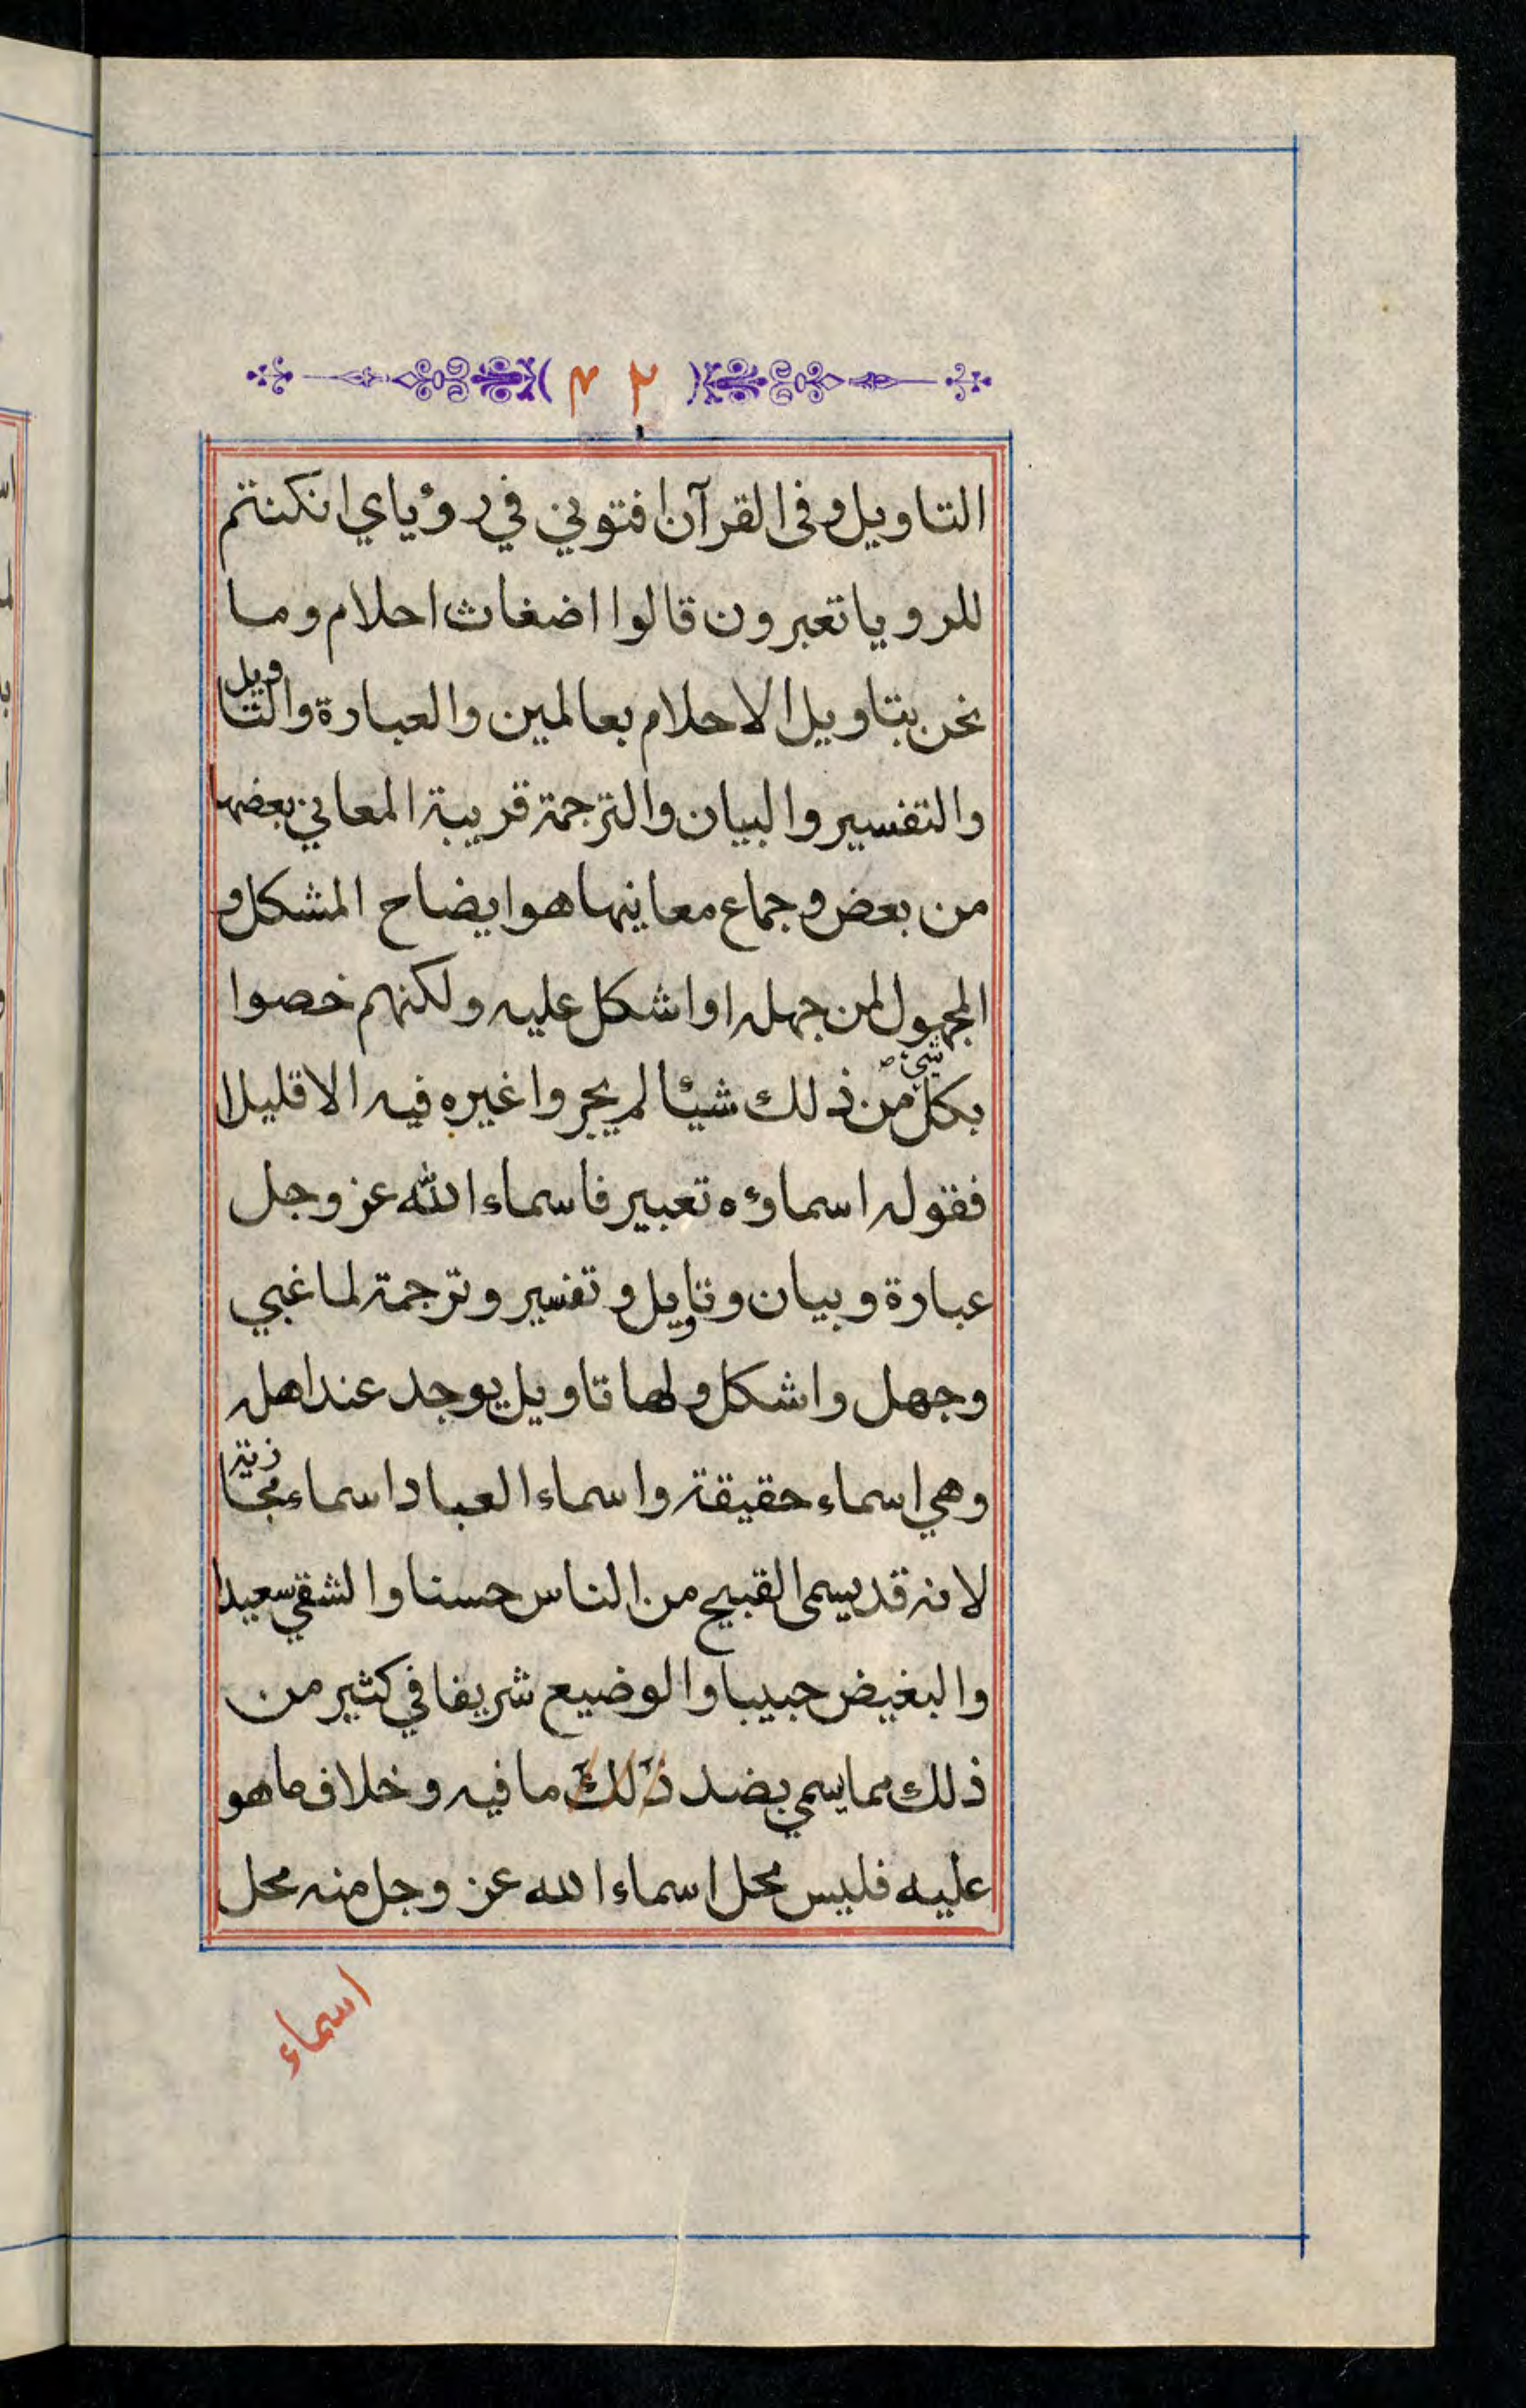 ٢٣
التاويل وفى القرآن افتوني في رؤياي انكنتم
للرويا تعبرون قالوا اضغاث احلام وما
نحن بتاويل الاحلام بعالمين والعبارة والتاويل
والتفسير والبيان والترجمة قريبة المعاني بعضها
من بعض وجماع معانيها هو ايضاح المشكل و
المجهول لمن جهله او اشكل عليه ولكنهم خصوا
بكل شيء من ذلك شيئا لم يجروا غيره فيه الا قليلا
فقوله اسماؤه تعبير فاسماء الله عز وجل
عبارة وبيان وتاويل وتفسير وترجمة لما غبي
وجهل واشكل ولها تاويل يوجد عند اهله
وهي اسماء حقيقة واسماء العباد اسماء مجازية
لانه قد يسمى القبيح من الناس حسنا والشقي سعيدا
والبغيض حبيبا والوضيع شريفا في كثير من
ذلك مما يسمي بضد ذلك ما فيه وخلاف ما هو
عليه فليس محل اسماء الله عز وجل منه محل
اسماء